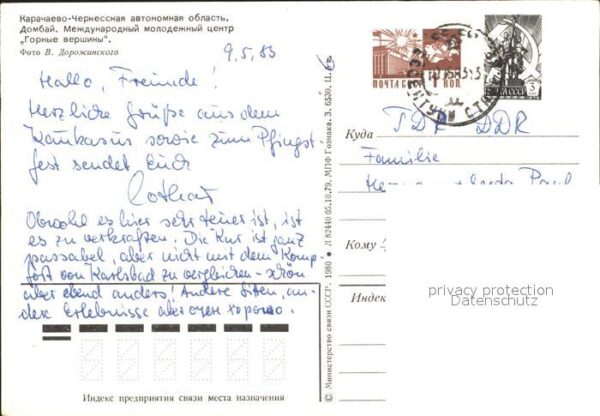 Карачаево-Черкесская автономная область.
Домбай. Международный молодежный центр
„Горные вершины".
Фото В. Дорожинского
9.5.83
Hallo, Freunde!
Herzliche Grüße aus dem
Kaukasus sowie zum Pfingst-
fest sendet Euch
Lothar
Obwohl es hier sehr teuer ist, ist
es zu verkraften. Die Kur ist ganz
passabel, aber nicht mit dem Komp-
fort von Karlsbad zu vergleichen - schön
aber ebend anders! Andere Sitten, an-
dere Erlebnisse aber очень хорошо.
Индекс предприятия связи места назначения
© Министерство связи СССР. 1980 • Л 82440 05.10.79. МПФ Гознака. З. 6530. Ц.
ПОЧТА СССР
1 КОП.
СССР
3
ЕССЕНТУКИ
Куда
DDR
Familie
Paul
Кому
Индекс
privacy protection
Datenschutz